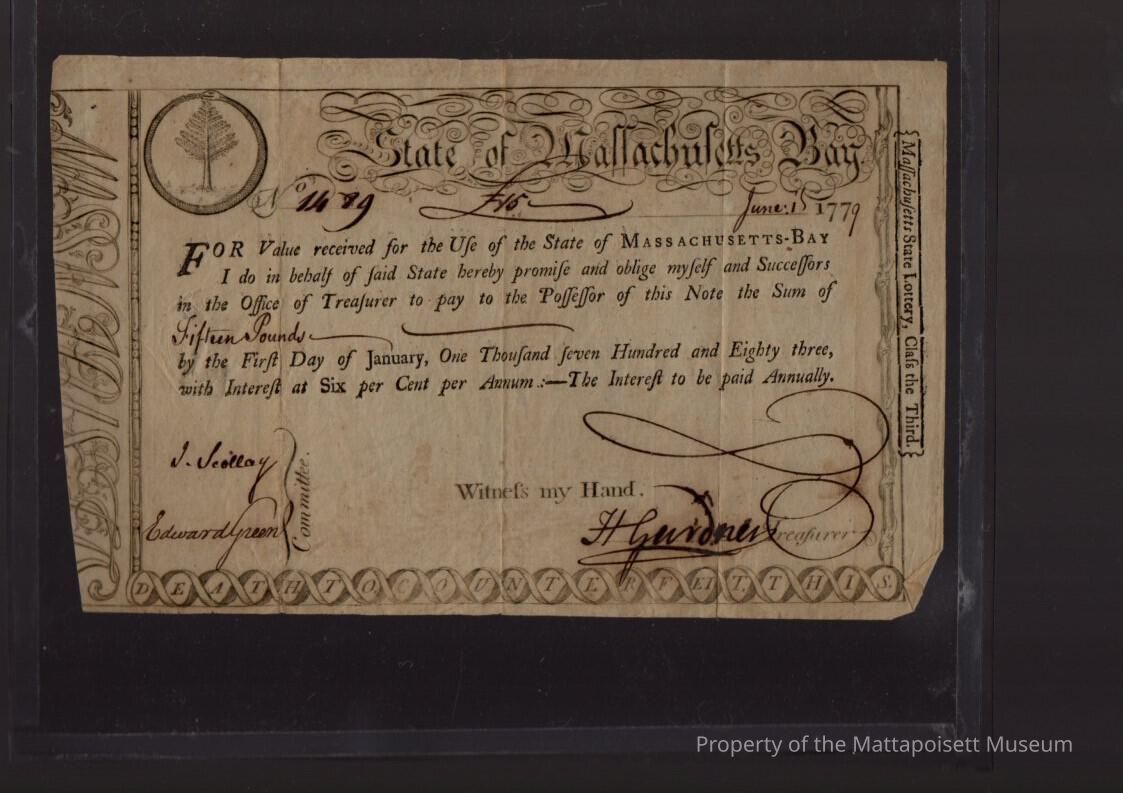 State of Maſſachuſetts Bay.
No 1489 £15 June: 1st 1779
FOR Value received for the Uſe of the State of MASSACHUSETTS-BAY
I do in behalf of ſaid State hereby promiſe and oblige myſelf and Succeſſors
in the Office of Treaſurer to pay to the Poſſeſſor of this Note the Sum of
Fifteen Pounds
by the Firſt Day of January, One Thouſand ſeven Hundred and Eighty three,
with Intereſt at Six per Cent per Annum.:—The Intereſt to be paid Annually.
J. Scollay
Edward Green
Committee.
Witneſs my Hand.
H Gardner Treaſurer
DEATH TO COUNTERFEIT THIS.
Maſſachuſetts State Lottery, Claſs the Third.
Property of the Mattapoisett Museum